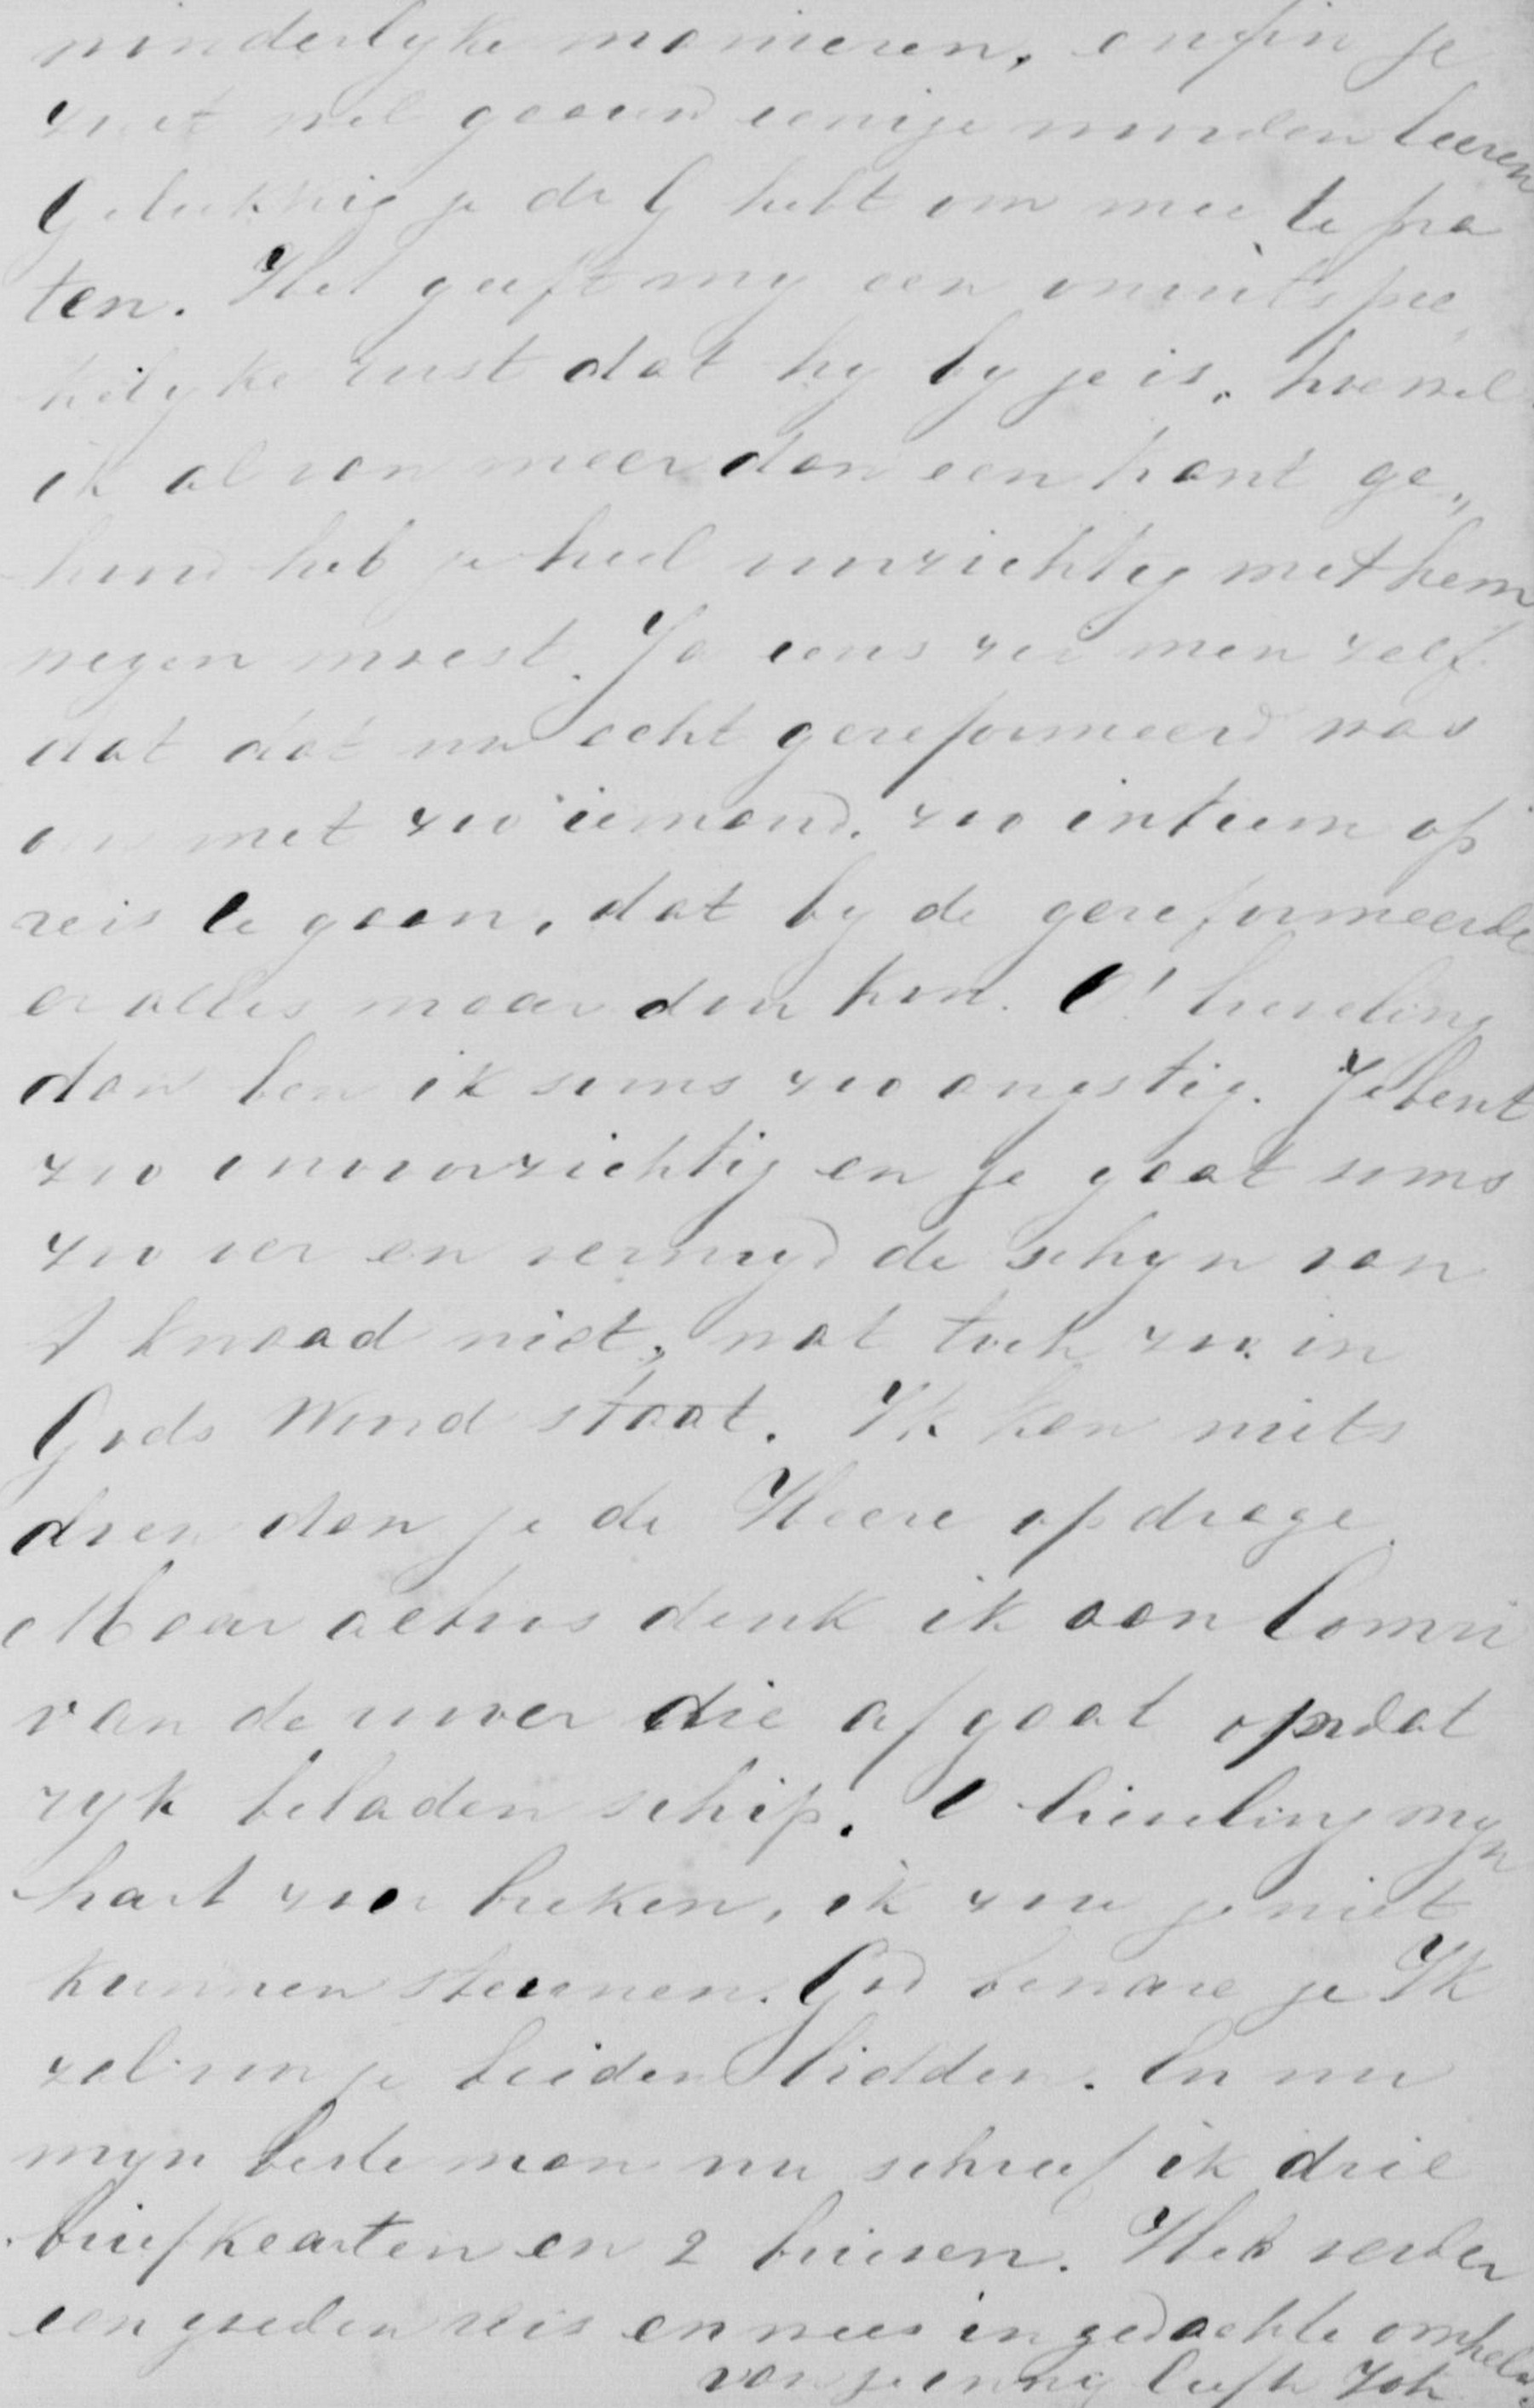 wonderlyke manieren, enfin je
zult wel gauw eenige woorden leeren
Gelukkig je de G hebt om mee te pra
ten. Het geeft my een onuitspre„
kelyke rust dat hy by je is, hoewel
ik al van meer dan een kant ge„
hoord heb je heel voorzichtig met hem
wezen moest. Ja eens zei men zelf
dat dát nu echt gereformeerd was
om met zoo iemand zoo intiem op
reis te gaan, dat by de gereformeerde
er alles maar door kon. O! lieveling
dan ben ik soms zoo angstig. Je bent
zoo onvoorzichtig en je gaat soms
zoo ver en vermyd de schyn van
t kwaad niet, wat toch zoo in
Gods Woord staat. Ik kan niets
doen dan je de Heere opdrage.
Maar altoos denk ik aan Comri
van de roover die afgaat op dat
ryk beladen schip. O lieveling myn
hart zou breken, ik zou je niet
kunnen steunen. God beware je Ik
zal voor je beiden bidden. En nu
myn beste man nu schreef ik drie
briefkaarten en 2 brieven. Heb verder
een goeden reis en wees in gedachte omhelsd
van je innig liefh Joh